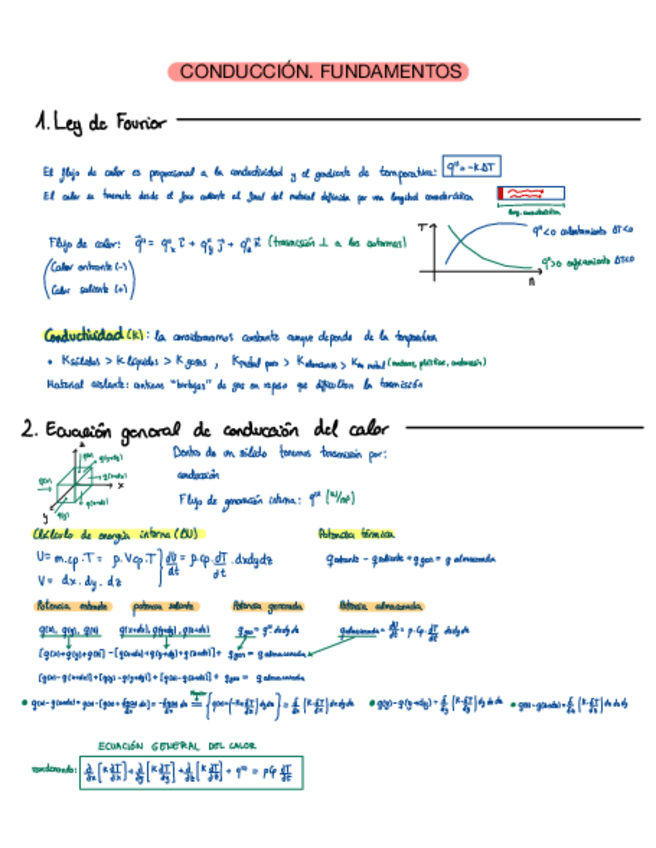 CONDUCCIÓN. FUNDAMENTOS
1. Ley de Fourier
El flujo de calor es proporcional a la conductividad y el gradiente de temperatura: q" = -K∆T
El calor se transmite desde el foco caliente al final del material definido por una longitud característica
long. característica
Flujo de calor: q⃗" = q"x i⃗ + q"y j⃗ + q"z k⃗ (transmisión ⊥ a las isotermas)
(Calor entrante (-)
Calor saliente (+))
T
q"<0 calentamiento ∆T<0
q">0 enfriamiento ∆T<0
n
Conductividad (K): la consideraremos constante aunque depende de la temperatura
• Ksólidos > K líquidos > K gases , Kmetal puro > Kaleaciones > Kno metal (madera, plástico,
Material aislante: contiene "burbujas" de gas en reposo que dificultan la transmisión
2. Ecuación general de conducción del calor
Dentro de un sólido tenemos transmisión por:
conducción
Flujo de generación interna: q''' (W/m³)
z
x
y
Cálculo de energía interna (∆U)
Potencia térmica
U = m.cp.T = ρ.V.cp.T } dU/dt = ρ.cp.dT/dt .dxdydz
V = dx.dy.dz
qentrante - qsaliente + qgen = q almacenada
Potencia entrante potencia saliente Potencia generada Potencia almacenada
q(x), q(y), q(z) q(x+dx), q(y+dy), q(z+dz) qgen = q''' dxdydz qalmacenada = dU/dt = ρ.cp.dT/dt dxdydz
[q(x)+q(y)+q(z)] - [q(x+dx)+q(y+dy)+q(z+dz)] + qgen = q almacenada
[q(x)-q(x+dx)] + [q(y)-q(y+dy)] + [q(z)-q(z+dz)] + qgen = q almacenada
ECUACIÓN GENERAL DEL CALOR
∂/∂x [K ∂T/∂x] + ∂/∂y [K ∂T/∂y] + ∂/∂z [K ∂T/∂z] + q''' = ρCp ∂T/∂t